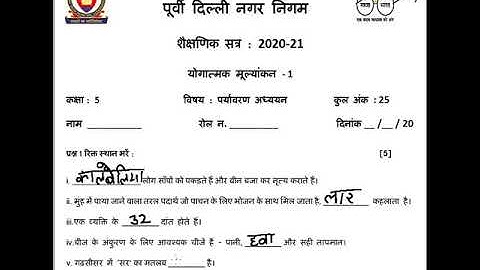 पूर्वी दिल्ली नगर निगम
शैक्षणिक सत्र : 2020-21
योगात्मक मूल्यांकन -1
कक्षा : 5 विषय : पर्यावरण अध्ययन कुल अंक : 25
नाम __________ रोल न. ________ दिनांक __/__/20
प्रश्न 1 रिक्त स्थान भरें : [5]
i. कालबेलिया लोग साँपों को पकड़ते हैं और बीन बजा कर नृत्य कराते हैं।
ii. मुंह में पाया जाने वाला तरल पदार्थ जो पाचन के लिए भोजन के साथ मिल जाता है, लार कहलाता है।
iii.एक व्यक्ति के 32 दांत होते हैं।
iv.बीज के अंकुरण के लिए आवश्यक चीजें हैं - पानी, हवा और सही तापमान।
v. गढ़सीसर में 'सर' का मतलब ________ है।